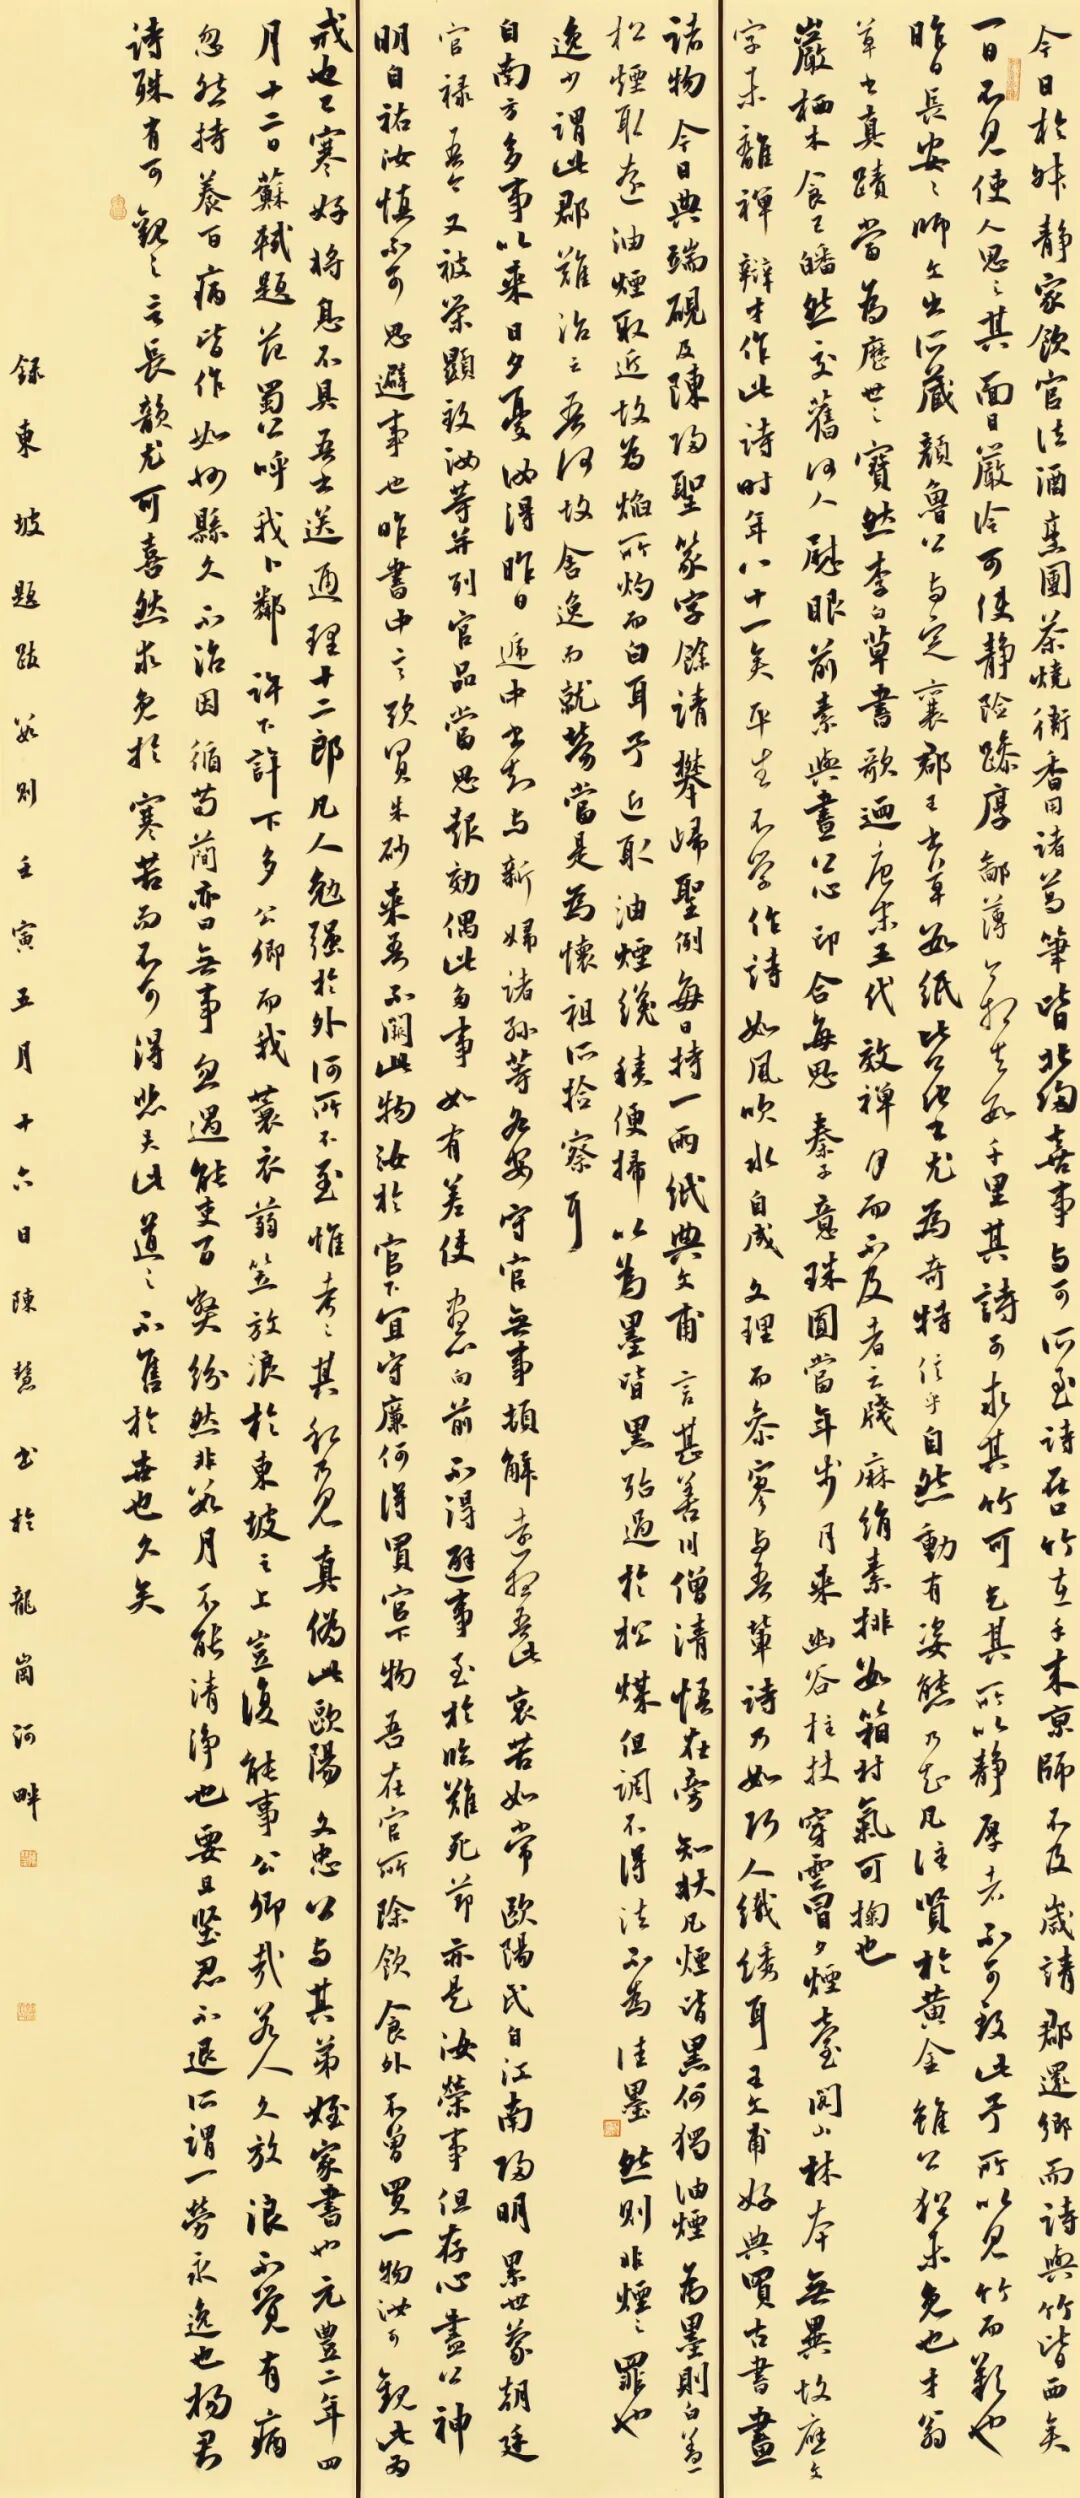 今日於叔静家飲官法酒烹團茶燒衙香用諸葛筆皆北歸喜事与可所至詩在口竹在手来京師不及歲請郡還鄉而詩與竹皆西矣
一日不見使人思之其面目嚴冷可使静险躁厚鄙薄今相去数千里其詩可求其竹可乞其所以静厚者不可致此予所以見竹而歎也
昨日長安安師文出所藏顔魯公与定襄郡王書草数紙比公他書尤為奇特信乎自然動有姿態乃知瓦注賢於黄金雖公猶未免也才翁
草書真蹟當為歷世之寶然李白草書歌迺唐末五代效禪月而不及者云牋麻絹素排数箱村氣可掬也
巖栖木食已皤然交舊何人慰眼前素與晝公心印合每思秦子意珠圓當年步月来幽谷柱杖穿雲冒夕煙臺閣山林本無異故應文
字未離禪辯才作此詩时年八十一矣平生不学作詩如風吹水自成文理而参寥与吾輩詩乃如巧人織绣耳王文甫好典買古書畫
諸物今日典端硯及陳归聖篆字餘請攀歸聖例每日持一兩紙典文甫言甚善川僧清悟在旁知状凡煙皆黑何獨油煙為墨則白盖
松煙取遠油煙取近故為焰所灼而白耳予近取油煙纔積便掃以為墨皆黑殆過於松煤但調不得法不為佳墨然則非煙之罪也
逸少謂此郡難治云吾何故舍逸而就勞當是為懷祖所檢察耳
自南方多事以来日夕憂汝得昨日遞中書知与新婦諸孫等各安守官無事頓解遠想吾此哀苦如常歐陽氏自江南归明累世蒙朝廷
官禄吾今又被荣顯致汝等并列官品當思報効偶此多事如有差使盡心向前不得避事至於临難死節亦是汝榮事但存心盡公神
明自祐汝慎不可思避事也昨書中言欲買朱砂来吾不闕此物汝於官下宜守廉何得買官下物吾在官所除飲食外不曾買一物汝可觀此为
戒也已寒好將息不具吾書送通理十二郎凡人勉强於外何所不至惟考之其私乃見真偽此歐陽文忠公与其弟姪家書也元豊二年四
月十二日蘇軾題范蜀公呼我卜鄰許下許下多公卿而我蓑衣蒻笠放浪於東坡之上豈復能事公卿哉若人久放浪不覺有病
忽然持養百病皆作如州縣久不治因循苟簡亦曰無事忽遇能吏百弊紛然非数月不能清净也要且坚忍不退所謂一勞永逸也楊君
詩殊有可觀之言長韻尤可喜然求免於寒苦而不可得悲夫此道之不售於世也久矣
録東坡題跋数则壬寅五月十六日陳慧书於龍崗河畔